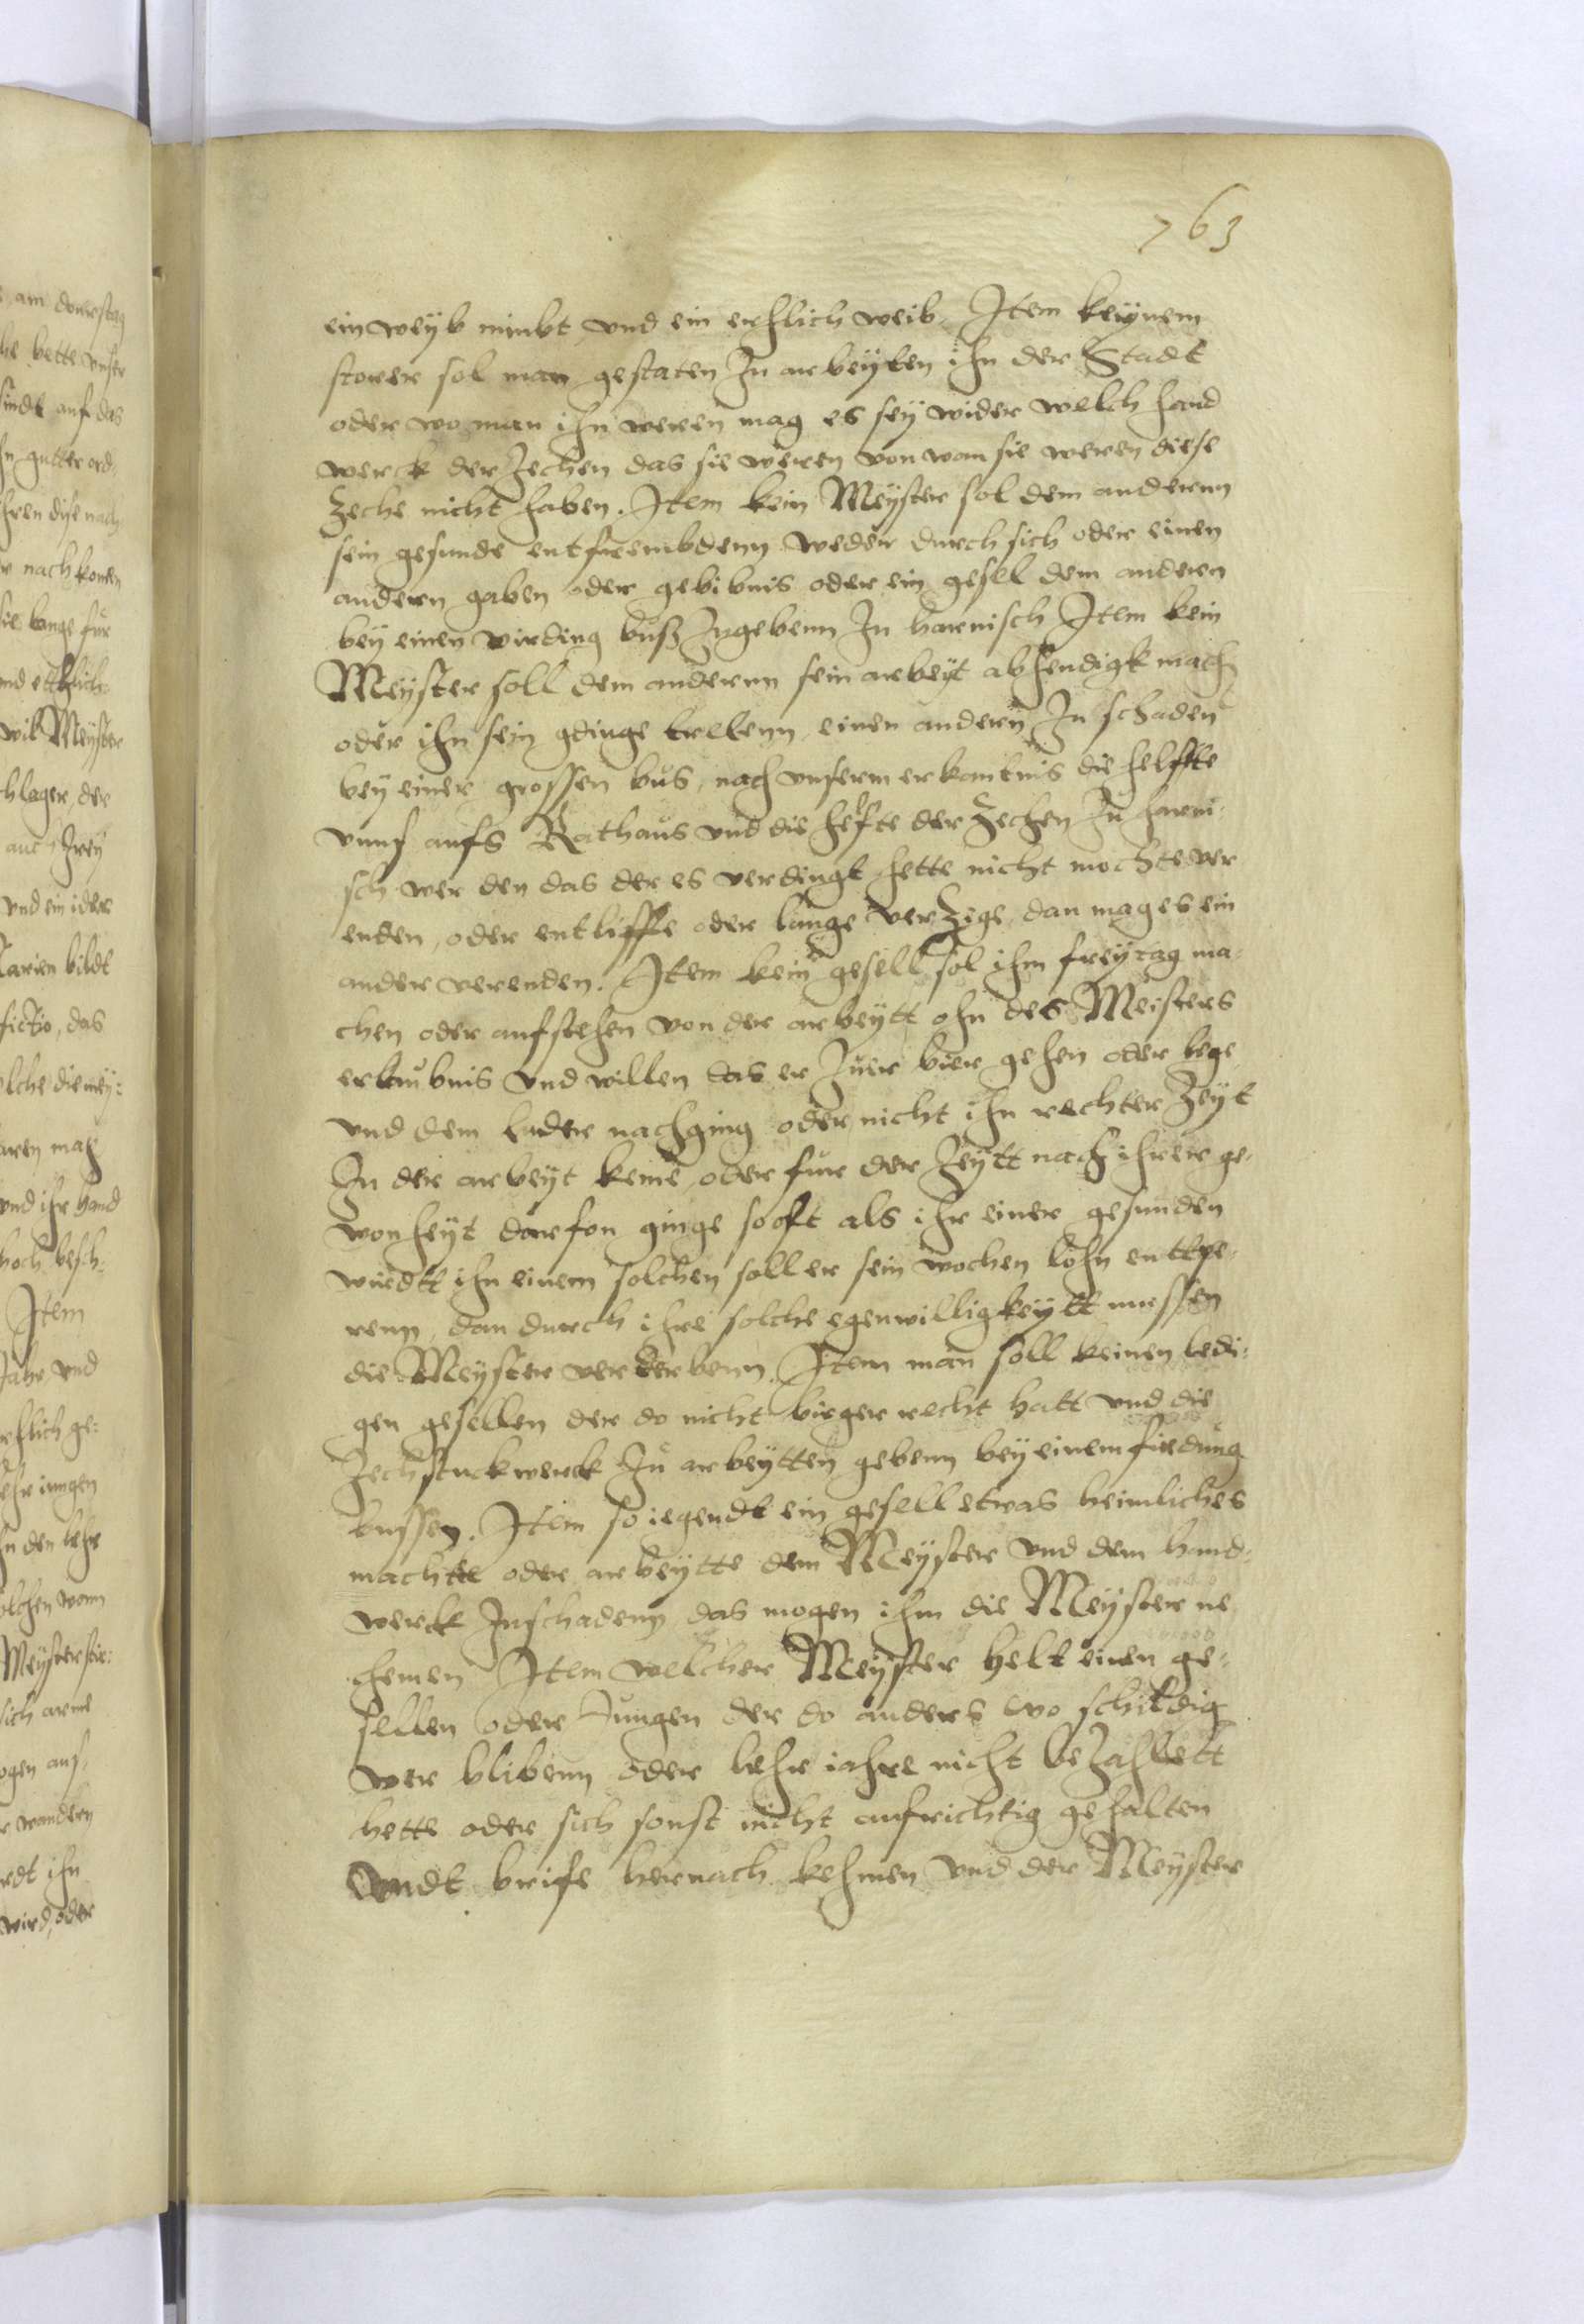 763
ein weyb nimbt vnd ein erhlich weib. Item keynem
storer sol man gestaten Zu arbeyten ihn der Stadt
oder wo man ihn weren mag es sey wider welch hand
werck der Zechen das sie weren von wan sie weren diese
Zeche nicht haben. Item kein Meyster sol dem anderenn
sein gesunde entfrembdenn weder durch sich oder einen
andern gaben oder gebibnis oder ein gesel dem anderen
bey einen virding buß Zugebenn Zu harnisch Item kein
Meyster soll dem anderenn sein arbeyt abhendigk mach
oder ihn sein gdinge trettenn einen andern Zu schaden
bey einer grossen bus, nach vnserm erkantnis die helffte
vnns aufs Rathaus vnd die hefte der Zechen Zu harni-
sch wer den das der es verdingt hette nicht mochte ver
enden, oder entliffe oder lange verzige, dan mag es ein
ander verenden. Item kein gesell sol ihm freytag ma-
chen oder aufstehen von der arbeytt ohn des Meisters
erlaubnis vnd willen das er Zuer bier gehen oder lege
vnd dem luder nachging oder nicht ihn rechter Zeyt
Zu der arbeyt keme, oder fur der Zeytt nach ihrer ge-
wonheyt darfon ginge so oft als ihr einer gefunden
wirdtt ihn einem solchen soll er sein wochen lohn enttpe-
renn, dan durch ihre solche egenwilligkeytt mussen
die Meyster verderbenn. Item man soll keinen ledi-
gen gesellen der do nicht birger recht hatt vnd die
Zech stuckwerck Zu arbeytten gebenn bey einem firdung
bussen. Item so iegendt ein gesell etwas heimliches
machtte oder arbeytte dem Meyster vnd dem hand-
werck Zuschadenn das mogen ihm die Meyster ne
hemen Item welcher Meyster helt einen ge-
sellen oder Jungen der do anders wo schuldig
wer blibenn oder lehr iahre nicht bezahlett
hette oder sich sonst nicht aufrichtig gehalten
Vndt brife hernach kehmen vnd der Meyster